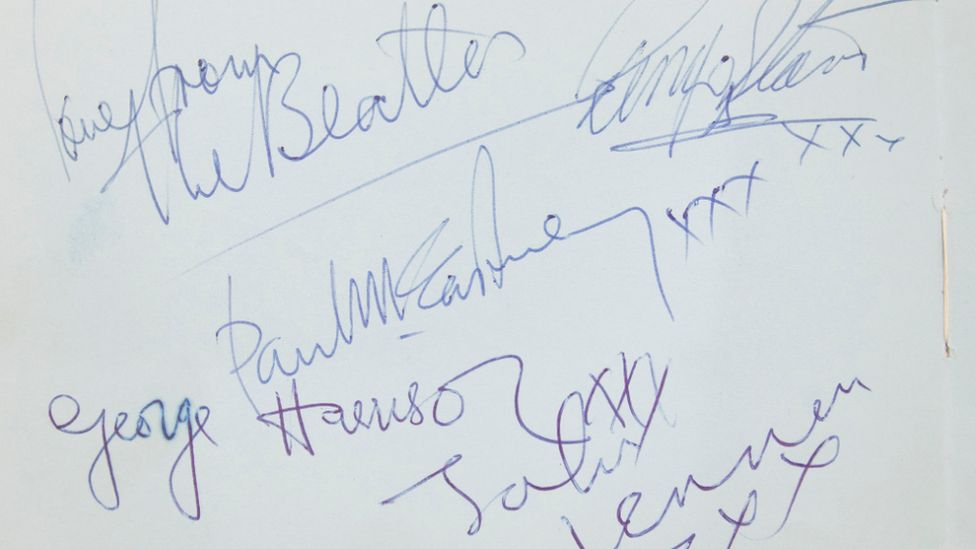 love from
The Beatles
Ringo Starr
xxx
Paul McCartney xxx
George Harrison xxx
John
Lennon
xx